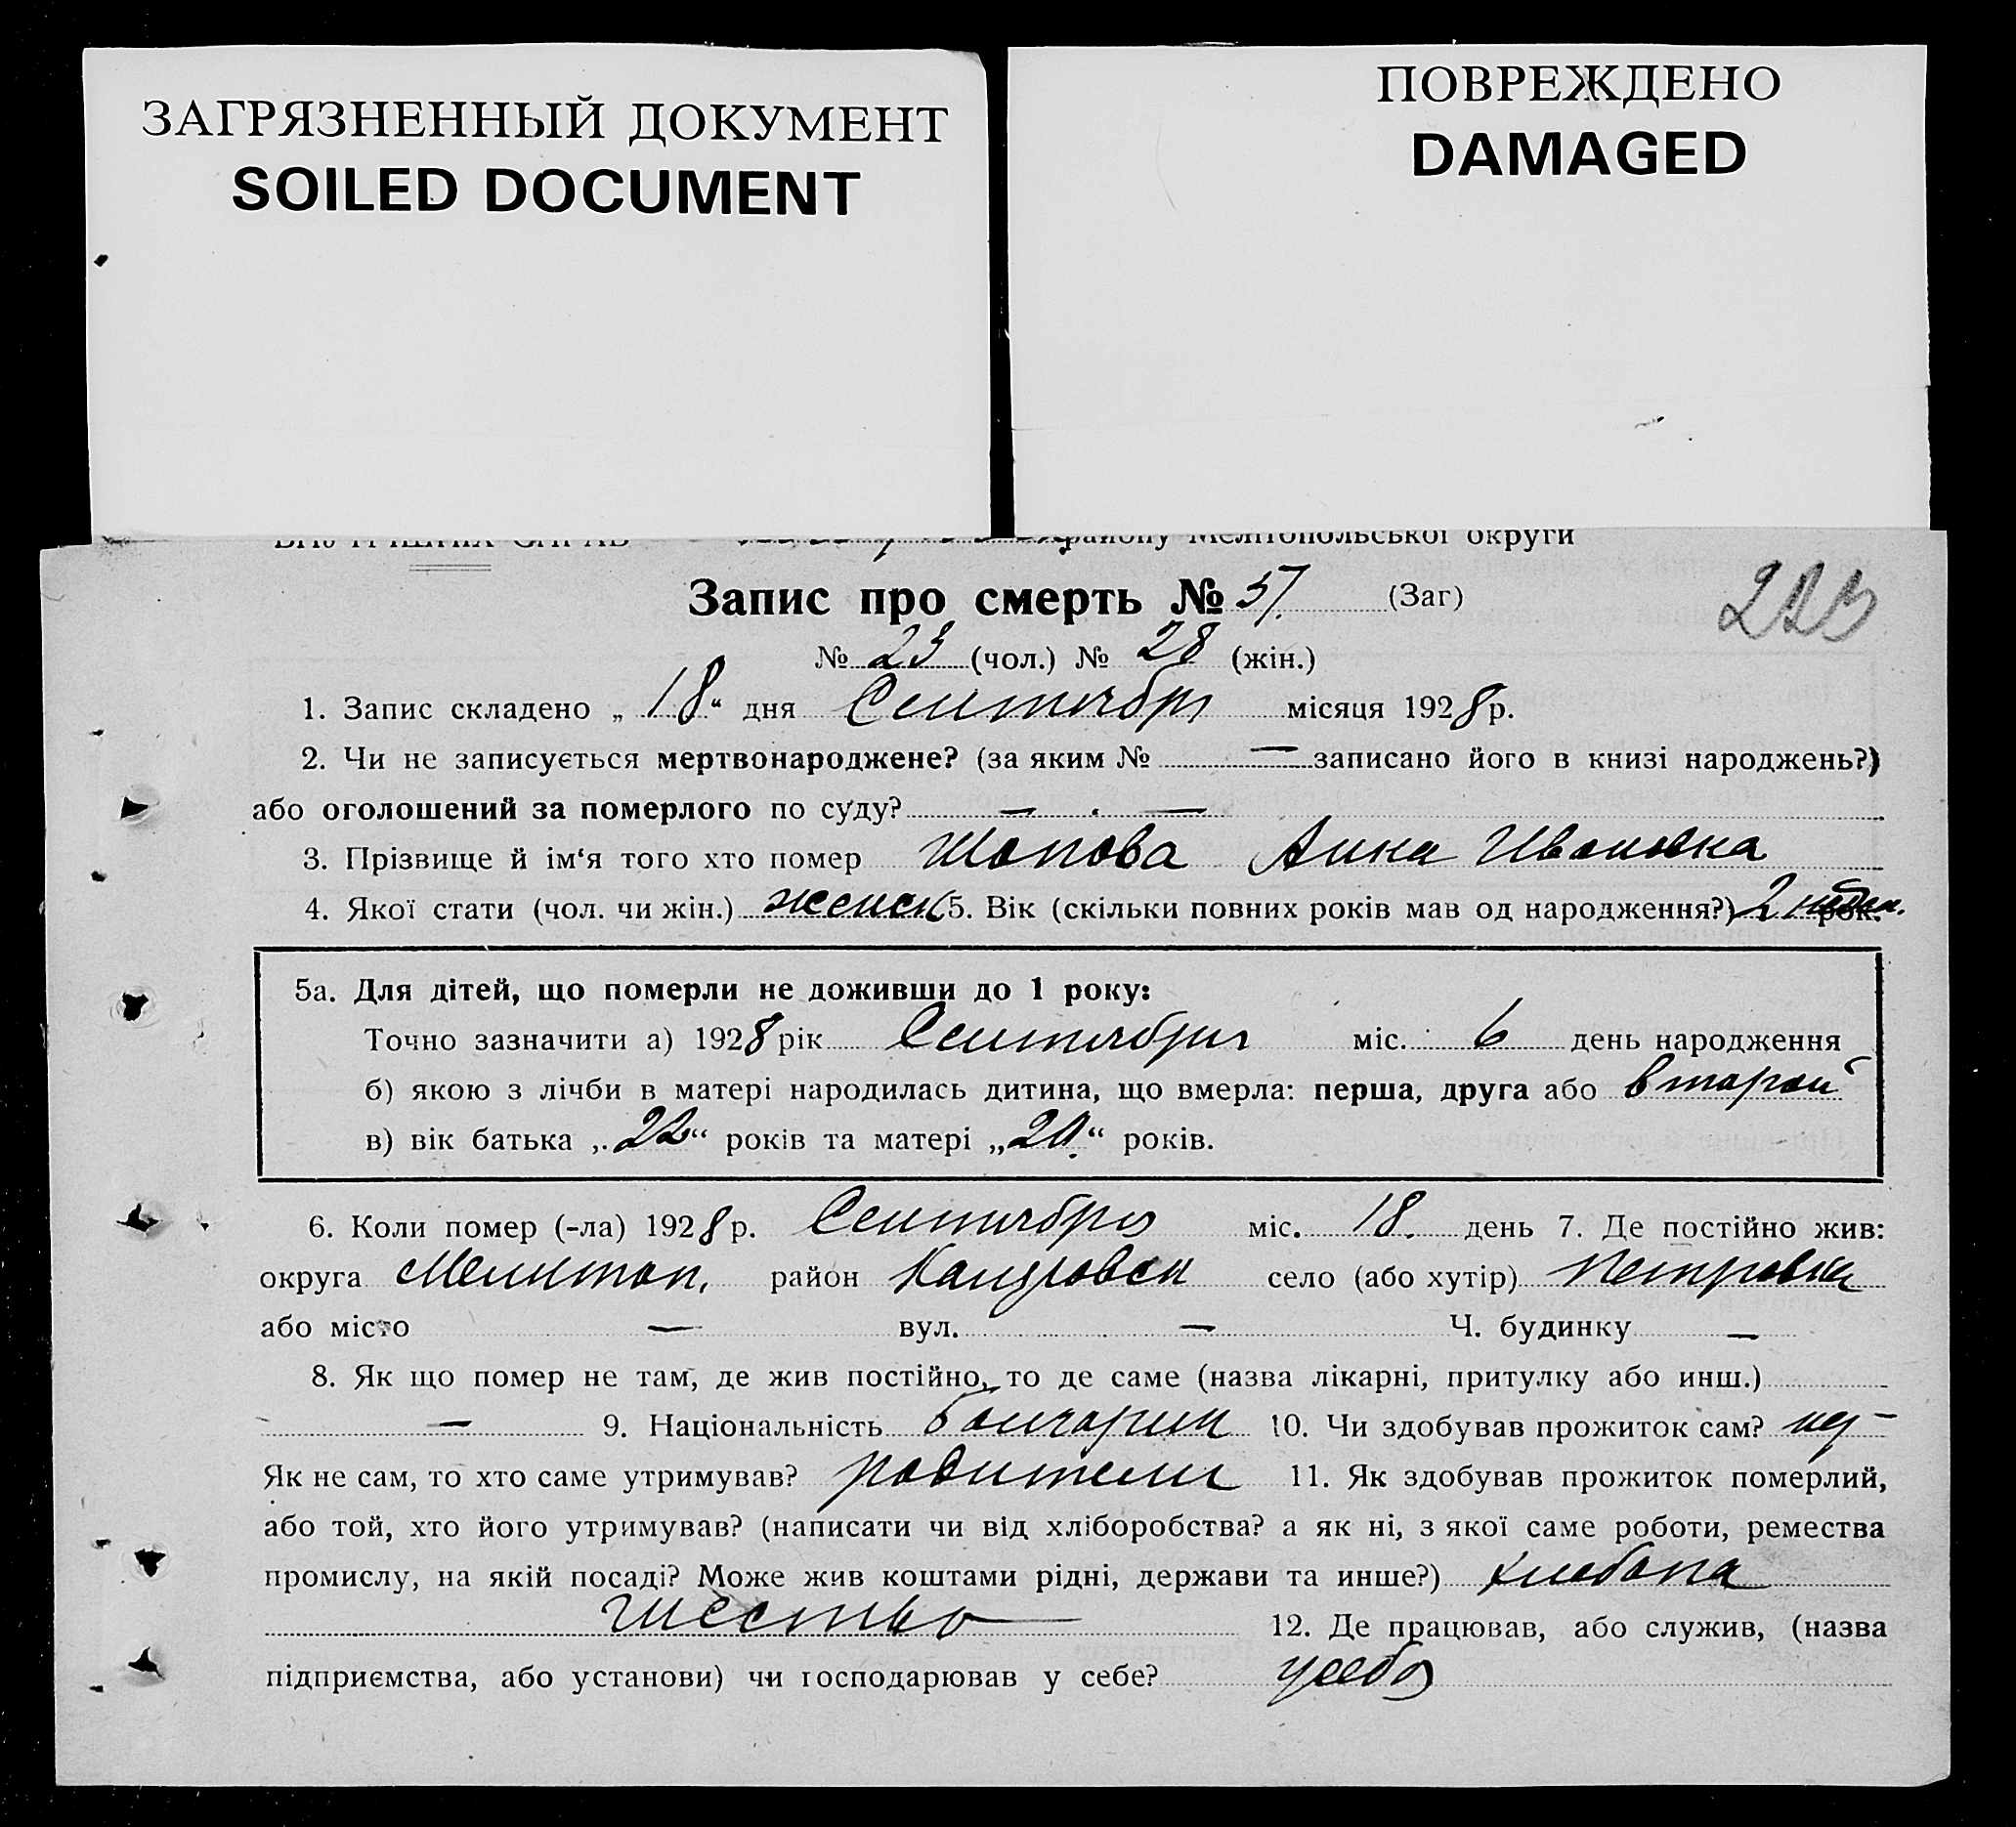 ЗАГРЯЗНЕННЫЙ ДОКУМЕНТ
SOILED DOCUMENT
ПОВРЕЖДЕНО
DAMAGED
району Мелітопольської округи
Запис про смерть № 51. (Заг)
223
№ 23 (чол.) № 28 (жін.)
1. Запис складено „ 18 “ дня Сентября місяця 1928 р.
2. Чи не записується мертвонароджене? (за яким № — записано його в книзі народжень?)
або оголошений за померлого по суду? — . —
3. Прізвище й ім‘я того хто помер Шопова Анна Ивановна
4. Якої стати (чол. чи жін.) женск 5. Вік (скільки повних років мав од народження?) 2 недел.
5а. Для дітей, що померли не доживши до 1 року:
Точно зазначити а) 1928 рік Сентября міс. 6 день народження
б) якою з лічби в матері народилась дитина, що вмерла: перша, друга або второй
в) вік батька „ 22 “ років та матері „ 20 “ років.
6. Коли помер (-ла) 1928 р. Сентября міс. 18. день 7. Де постійно жив:
округа Мелитоп. район село (або хутір) Петровка
або місто — вул. — Ч. будинку —
8. Як що помер не там, де жив постійно, то де саме (назва лікарні, притулку або инш.)
— 9. Національність болгарин 10. Чи здобував прожиток сам?
Як не сам, то хто саме утримував? родители 11. Як здобував прожиток померлий,
або той, хто його утримував? (написати чи від хліборобства? а як ні, з якої саме роботи, ремества
промислу, на якій посаді? Може жив коштами рідні, держави та инше?) хлебопа
шество 12. Де працював, або служив, (назва
підприємства, або установи) чи господарював у себе? у себя